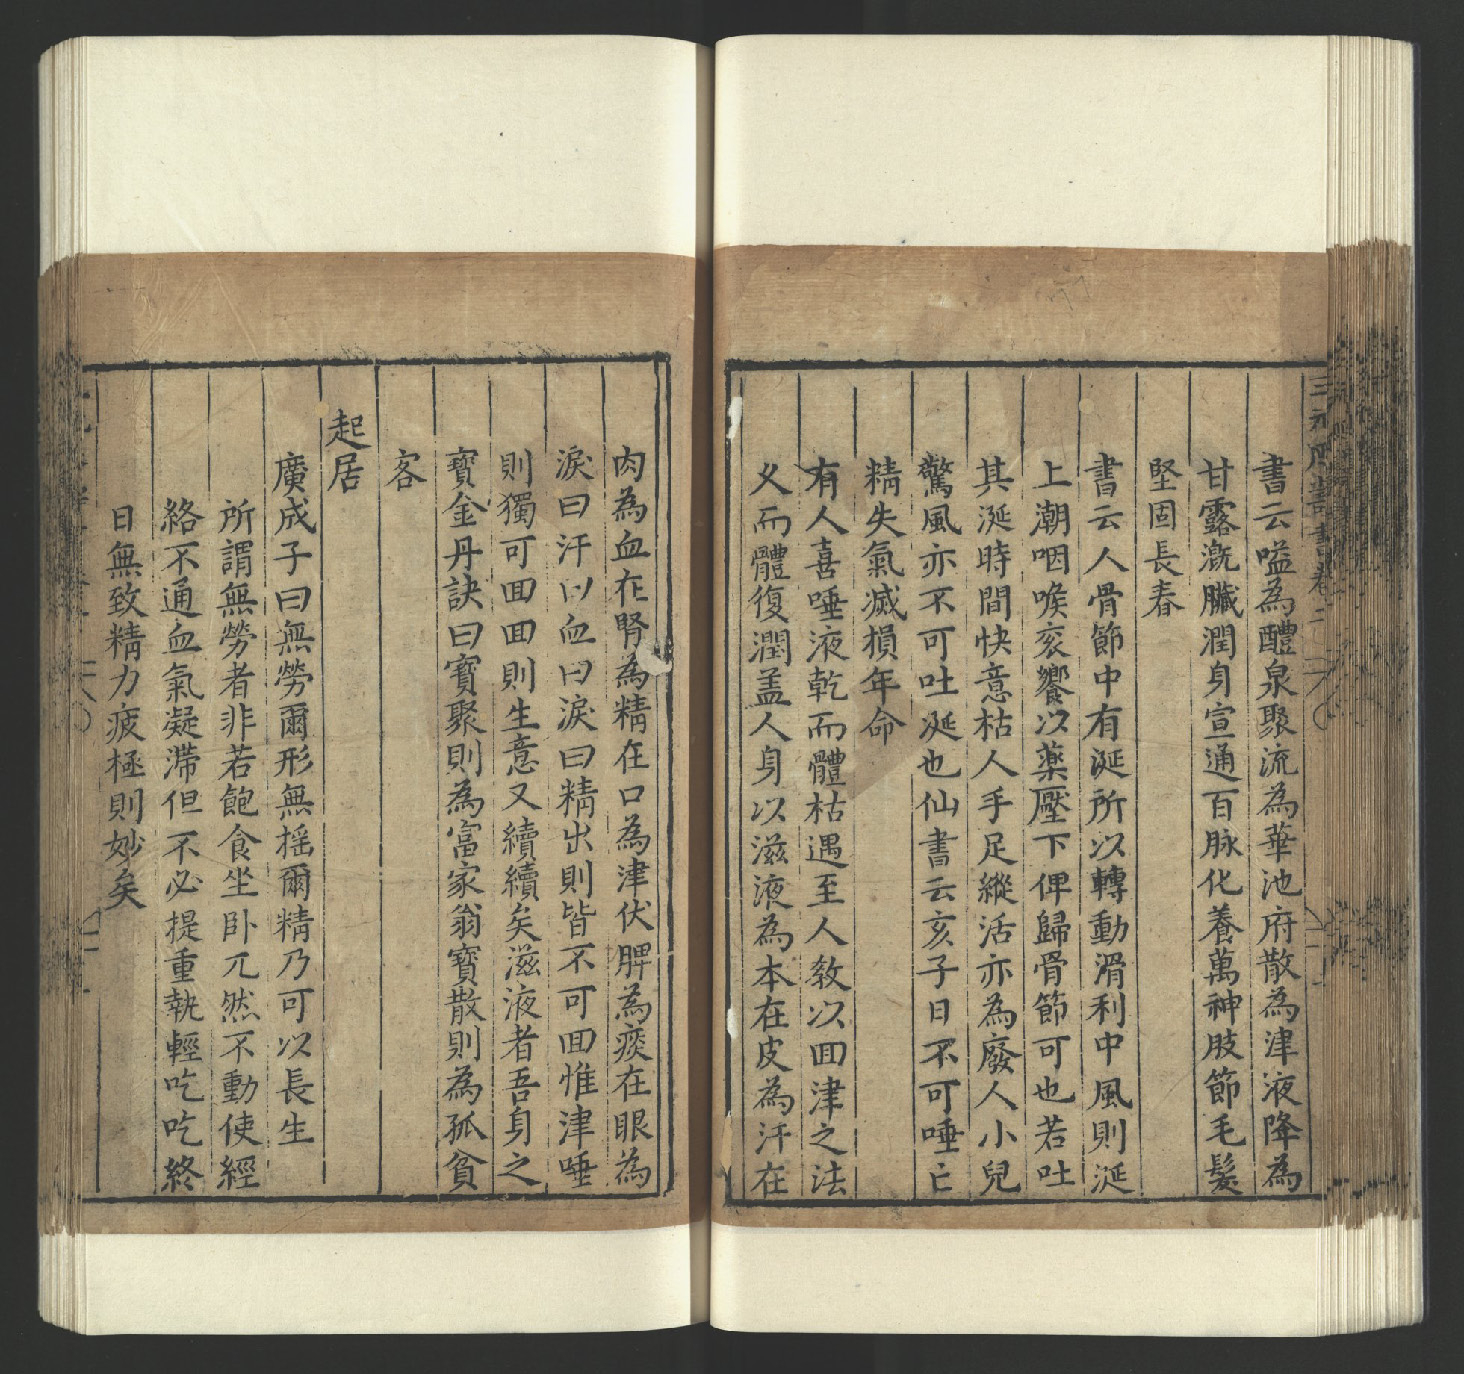 書云嗌為醴泉聚流為華池府散為津液降為
甘露漑臟潤身宣通百脉化養萬神肢節毛髮
堅固長春
書云人骨節中有涎所以轉動滑利中風則涎
上潮咽喉衮響以藥壓下俾歸骨節可也若吐
其涎時間快意枯人手足縱活亦為廢人小兒
驚風亦不可吐涎也仙書云亥子日不可唾亡
精失氣減損年命
有人喜唾液乾而體枯遇至人教以囬津之法
乆而體復潤盖人身以滋液為本在皮為汗在
肉為血在腎為精在口為津伏脾為痰在眼為
淚曰汗曰血曰淚曰精出則皆不可囬惟津唾
則獨可囬囬則生意又續續矣滋液者吾身之
寳金丹訣曰寳聚則為富家翁寳散則為孤貧
客
起居
廣成子曰無勞爾形無搖爾精乃可以長生
所謂無勞者非若飽食坐卧兀然不動使經
絡不通血氣凝滯但不必提重執輕吃吃終
日無致精力疲極則妙矣